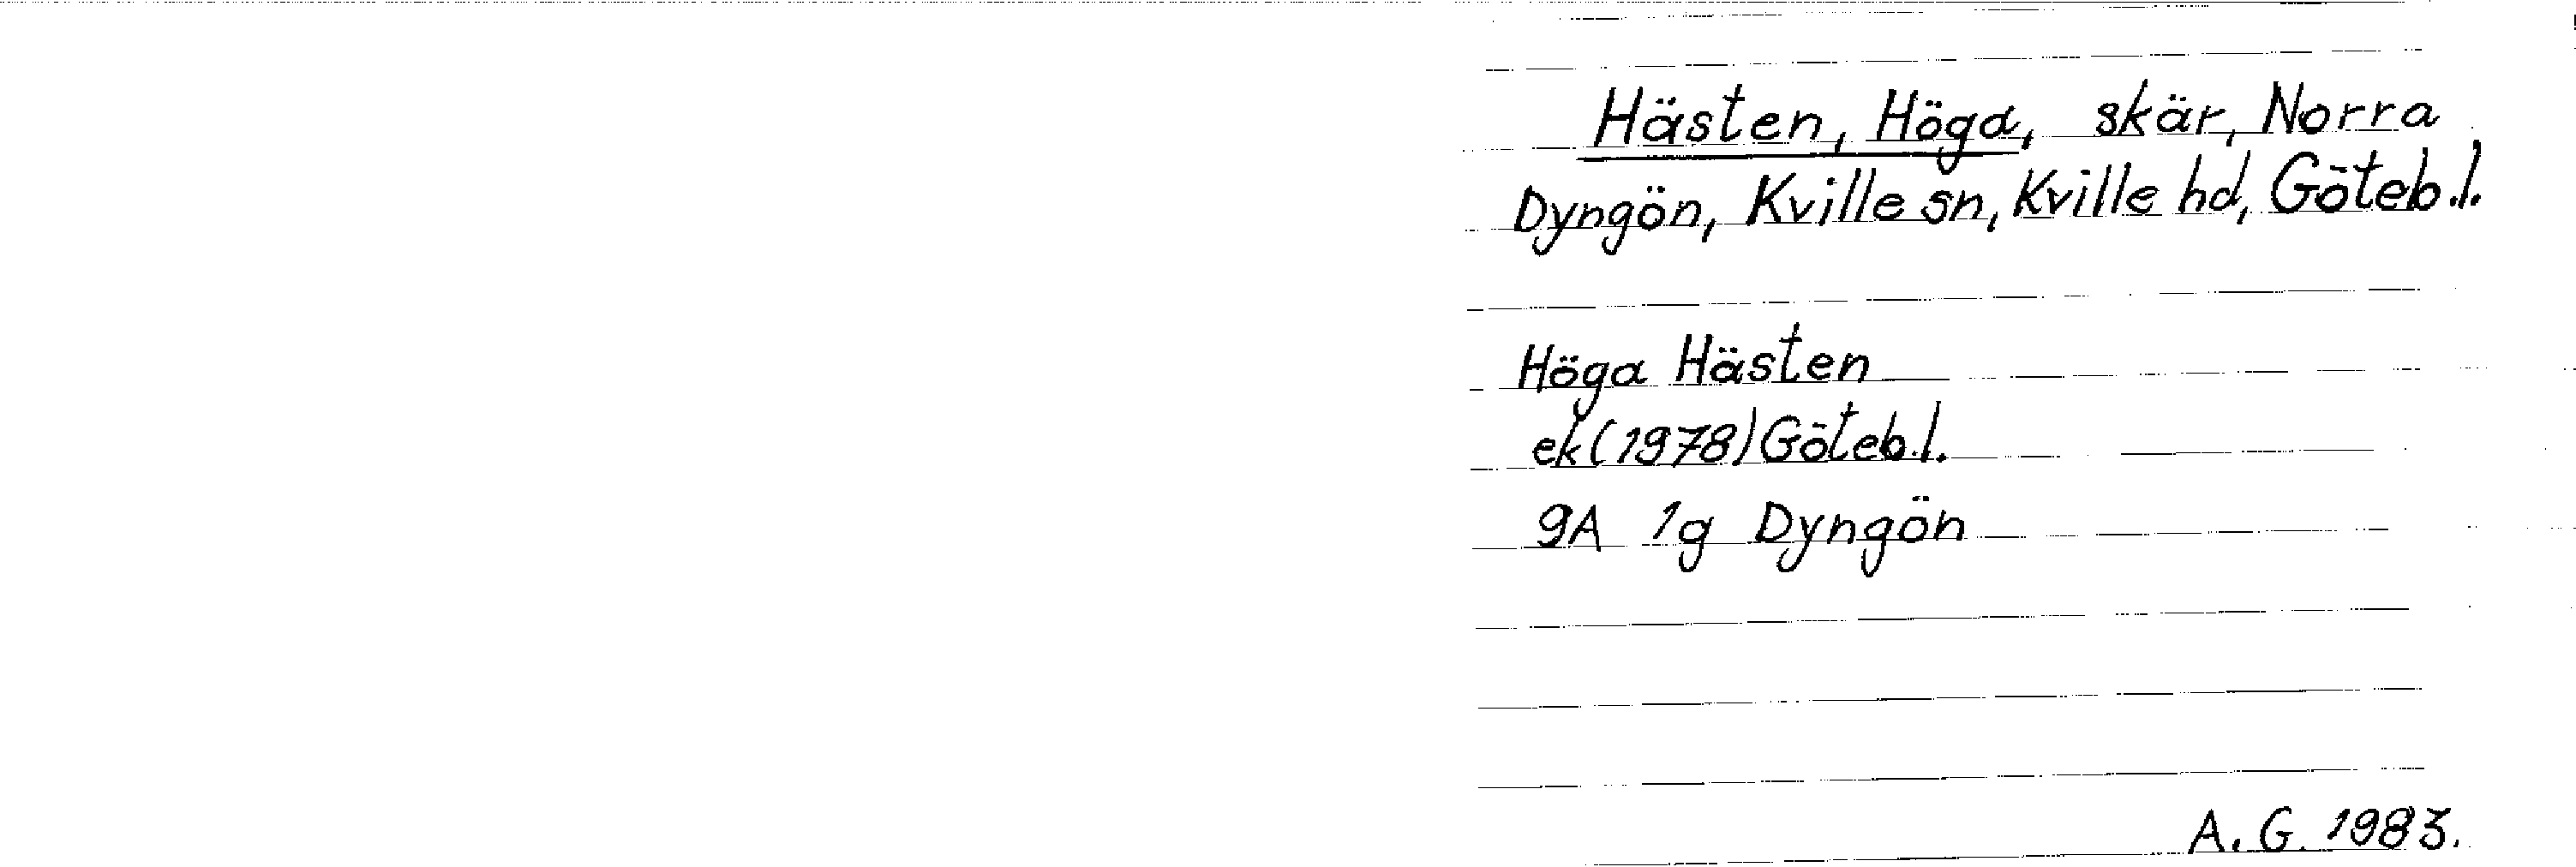 Hästen, Höga, skär, Norra
Dyngön, Kville sn, Kville hd, Göteb.l.
Höga Hästen
ek (1978) Göteb.l.
9A 1g Dyngön
A. G. 1983.